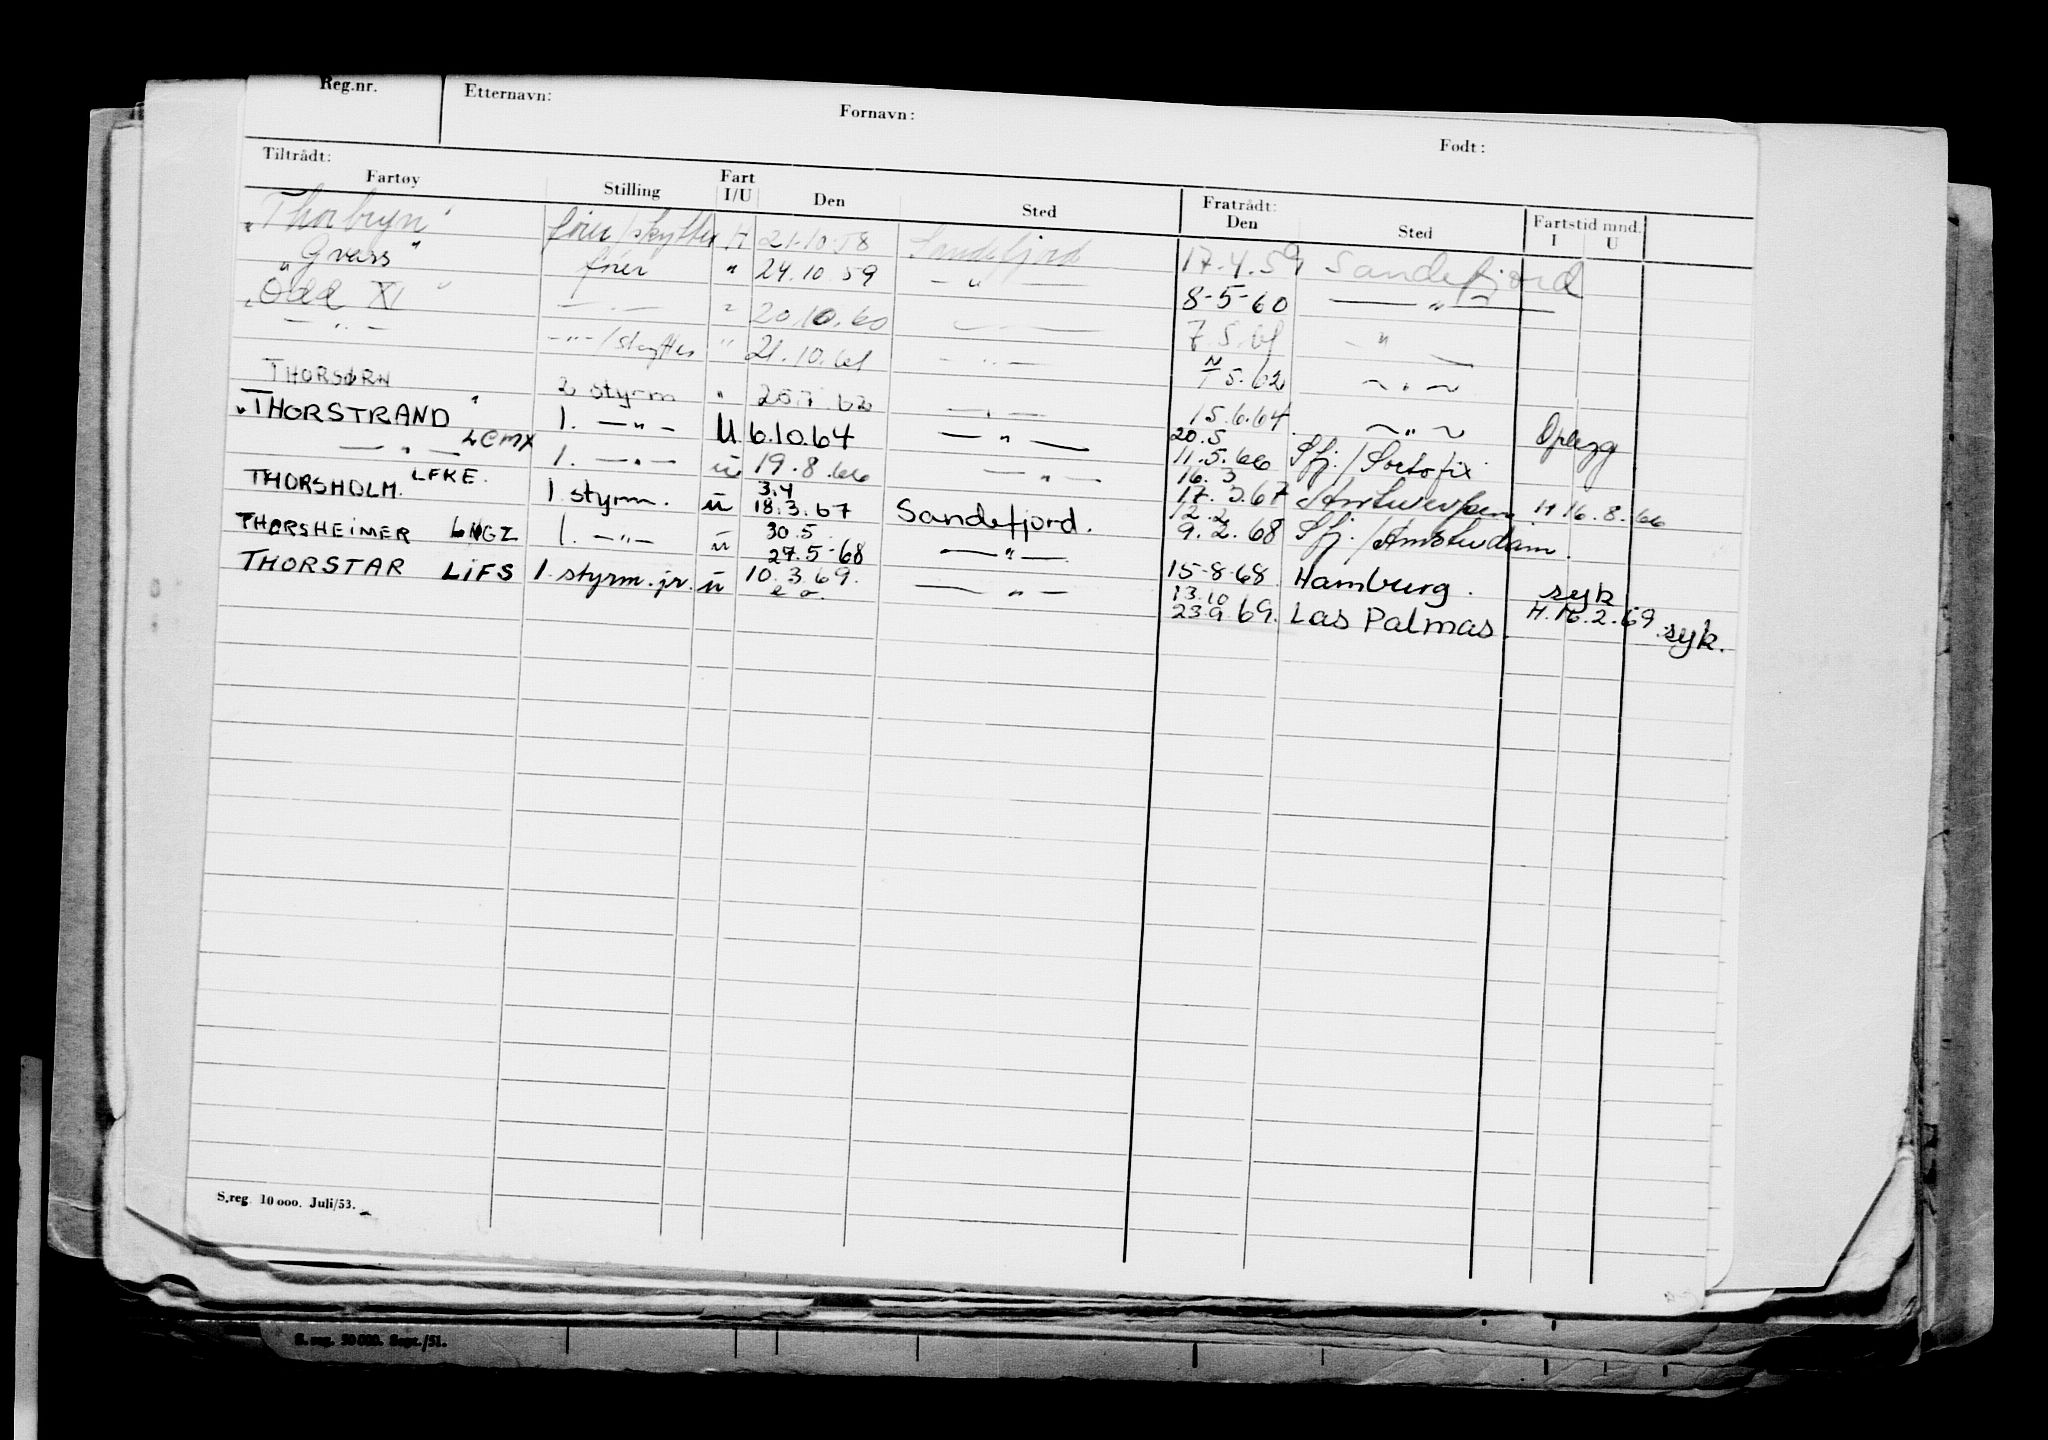 Reg.nr. Etternavn: Fornavn: Født:
Tiltrådt: Fratrådt: Fartstid mnd.
Fartøy Stilling Fart I/U Den Sted Den Sted I U
"Thorbryn" fører/skytter H 21.10.58 Sandefjord 17.4.59 Sandefjord
"Gvass" fører " 24.10.59 — " — 8-5-60 — " —
"Odd XI" — . — " 20.10.60 — . — 7.5.61 "
— " — — " — /skytter " 21.10.61 — " — 5.62 ~ " ~
THORSØRN 2 styrm " 62 — " — 15.6.64 ~ " ~ Oplegg
"THORSTRAND" 1. — " — U 6.10.64 — " — 20.5 11.5.66 Sfj./
— " — LCMX 1. — " — U 19.8.66 — " — 16.3 17.3.67 Antwerpen H 16.8.66
THORSHOLM. LFKE. 1 styrm. U 3.4 18.3.67 Sandefjord. 12.2 9.2.68 Sfj./Amsterdam.
THORSHEIMER 1. — " — U 30.5 27.5-68 — " — 15-8-68 Hamburg. syk
THORSTAR LIFS 1. styrm. jr. U 10.3.69. — " — 13.10 23.9.69. Las Palmas. H.16.2.69 syk.
S.reg. 10 000. Juli/53.
S. reg. 20 000. Sept./51.